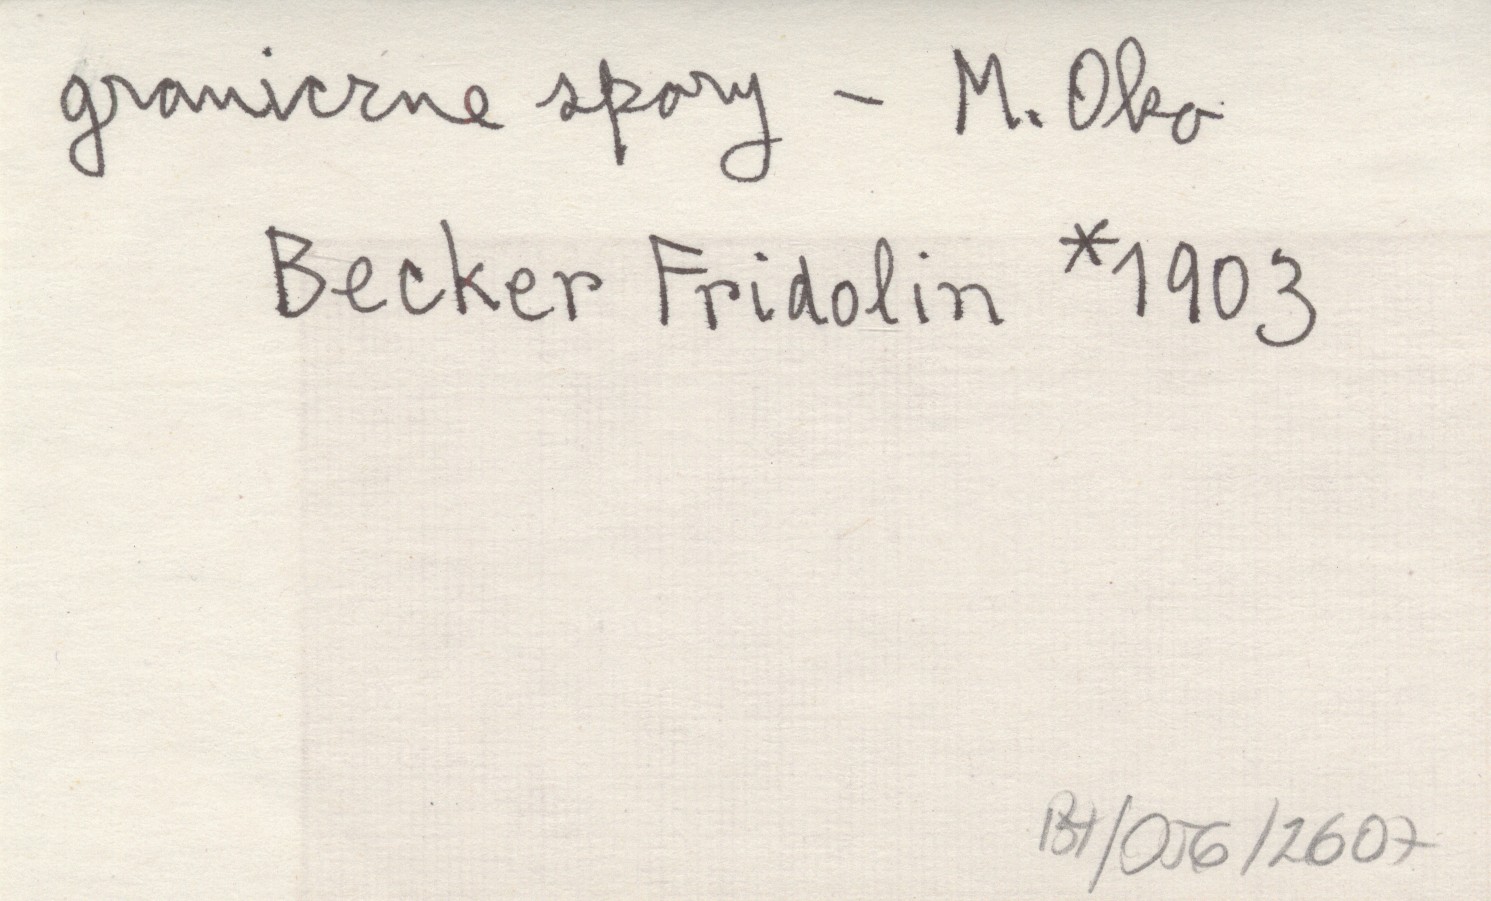 graniczne spory – M. Oko
Becker Fridolin *1903
BH/056/2607